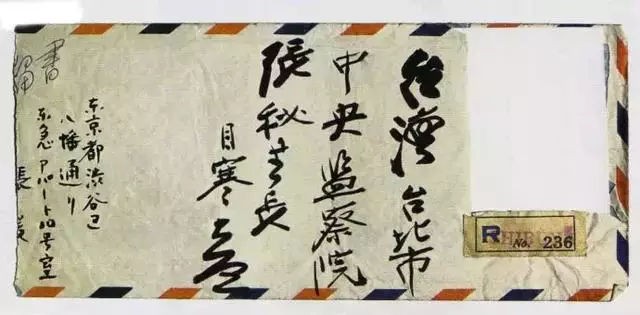 台灣台北市
中央監察院
張秘書長
目寒
東京都渋谷区
八幡通り
東急アパート 号室
張爰
書留
R No. 236